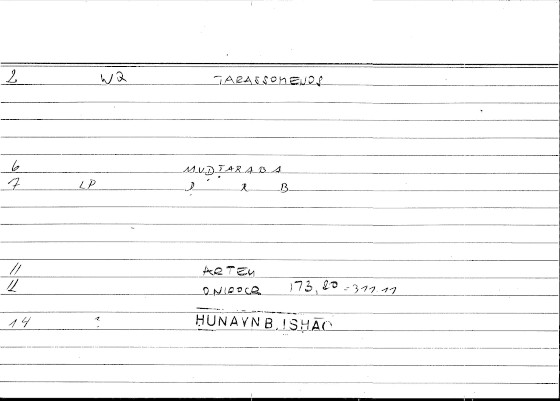 2 W2 TARASSOMENOS
6 MUḌṬARABA
7 LP Ḍ R B
11 ARTEM
12 ONIROCR 173,20 - 311,11
14 ? HUNAYN B. ISHĀQ